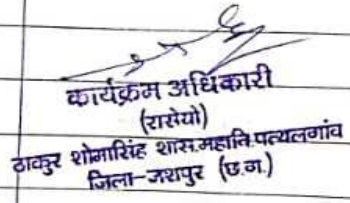 कार्यक्रम अधिकारी
(रासेयो)
ठाकुर शोभासिंह शास.महावि.पत्थलगांव
जिला-जशपुर (छ.ग.)